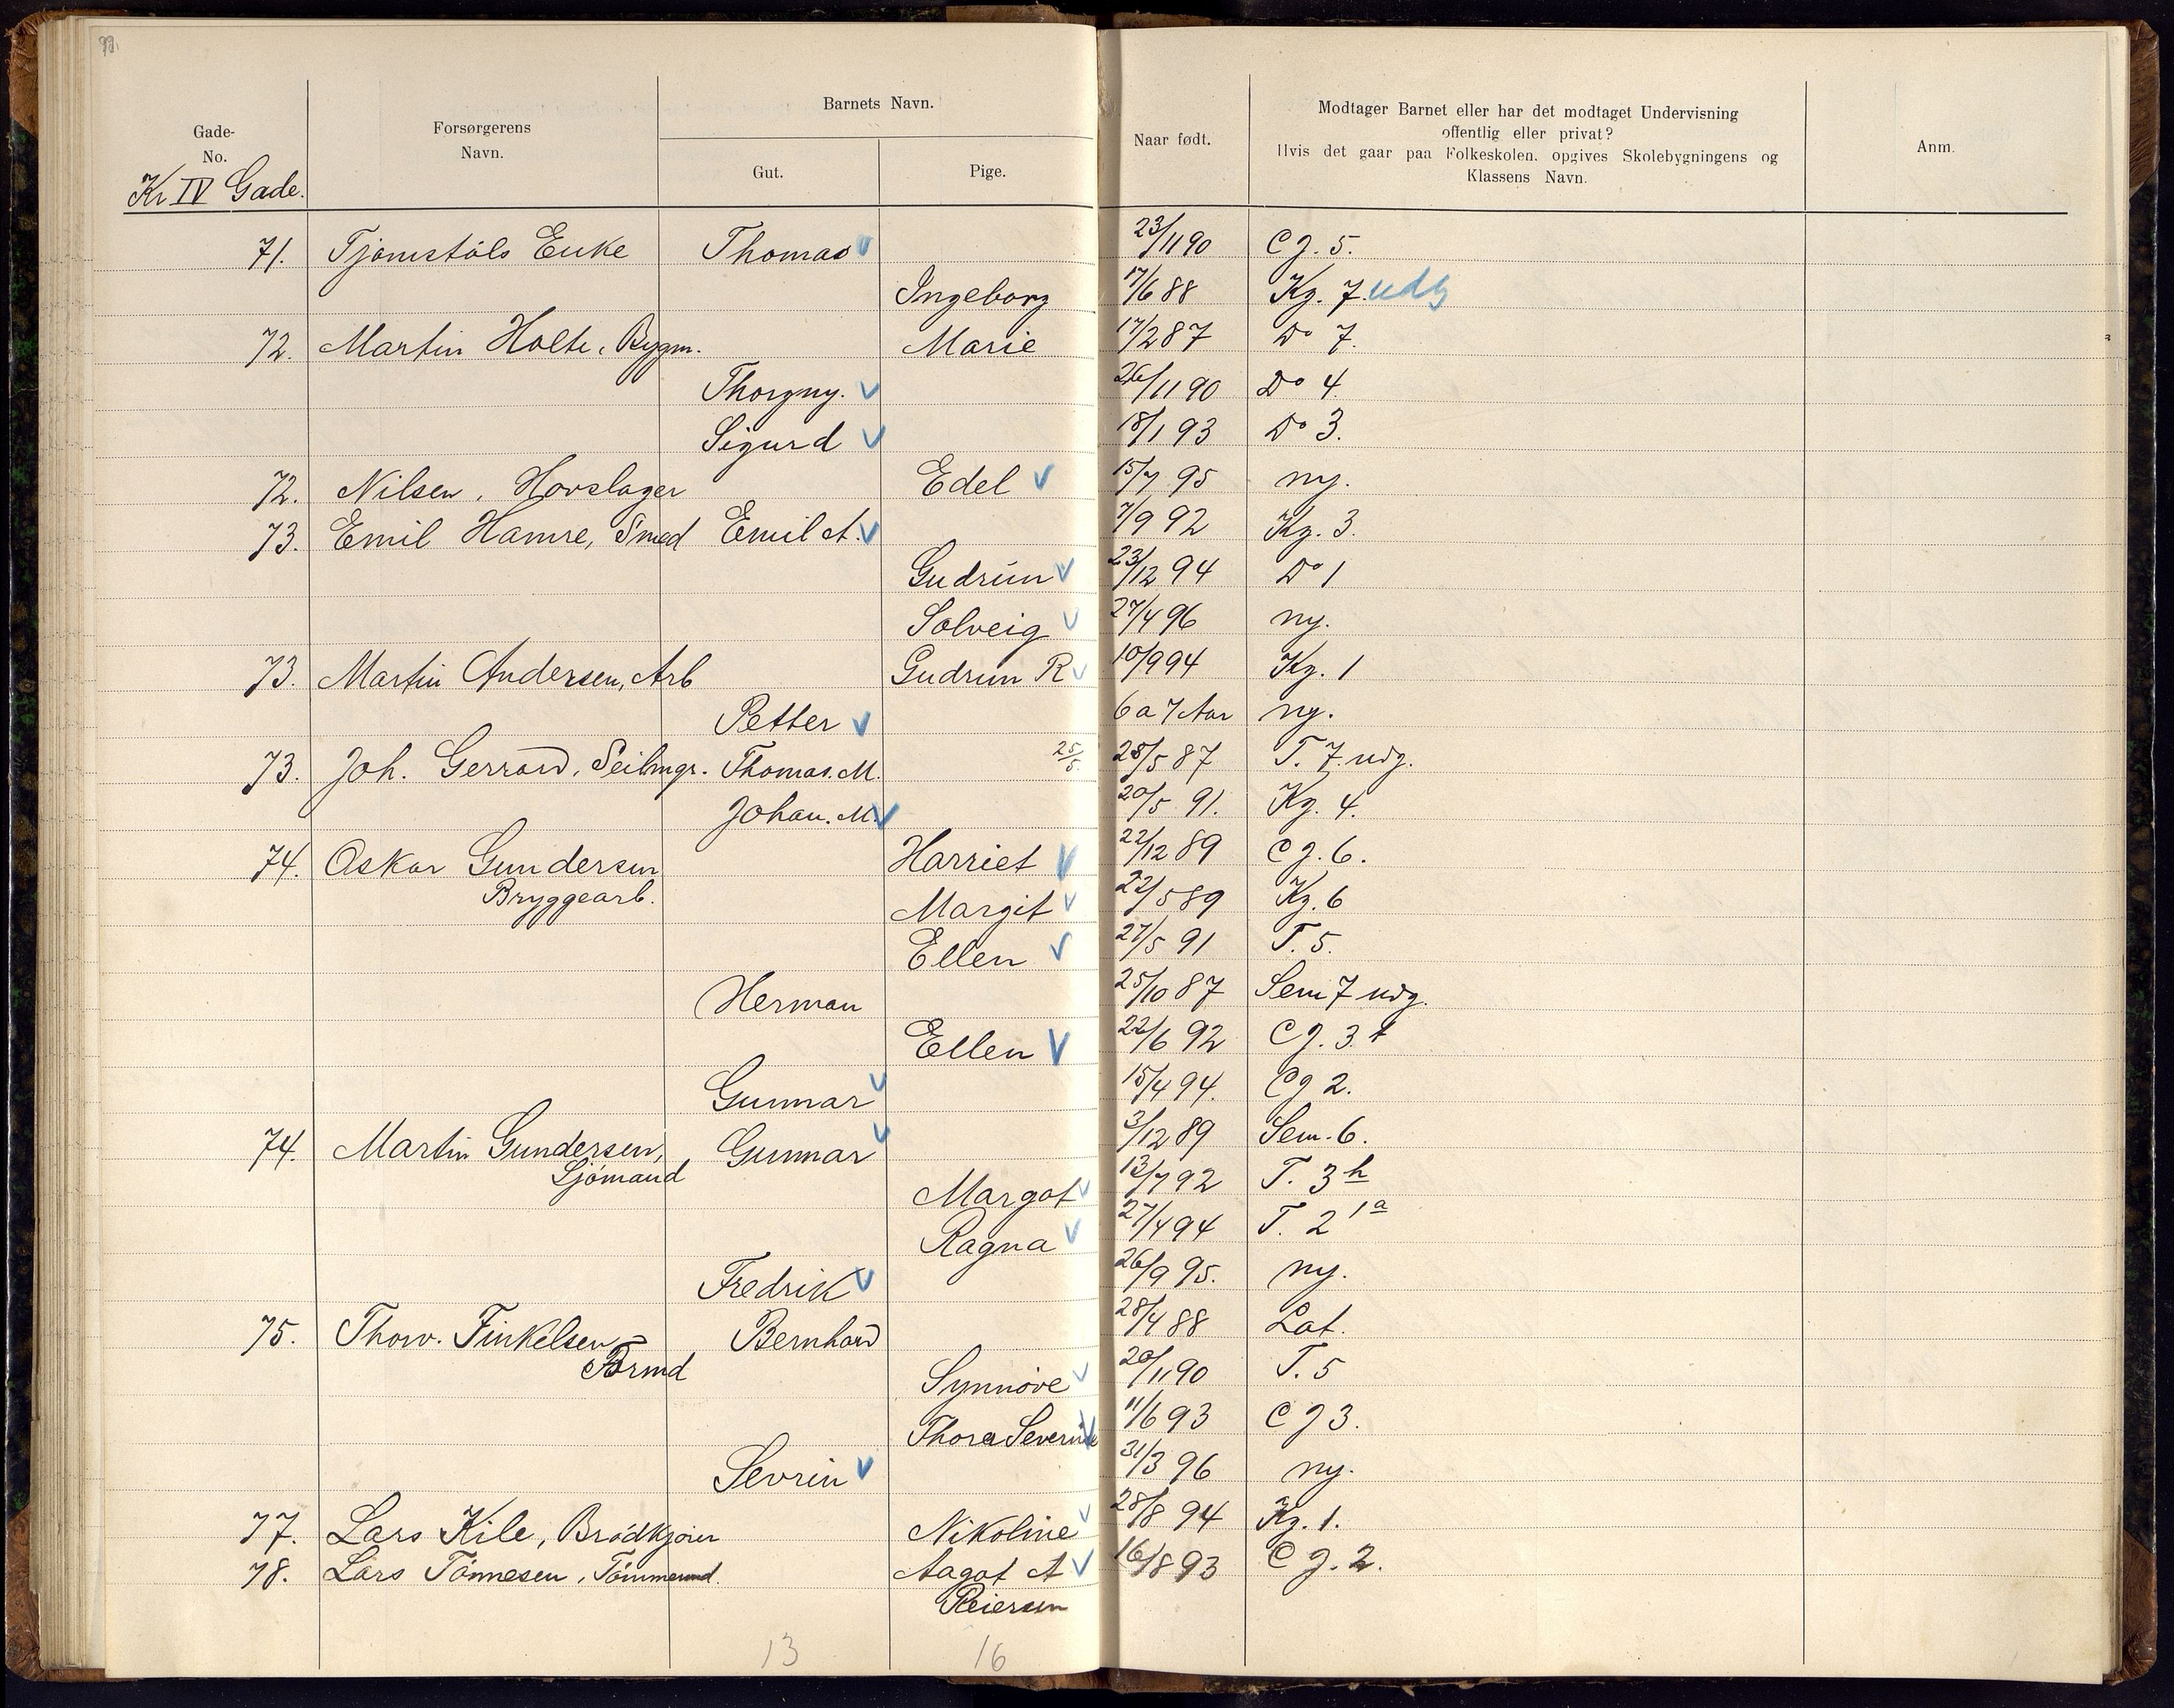 99.
Gade-
No.
Forsørgerens
Navn.
Barnets Navn.
Gut.
Pige.
Naar født.
Modtager Barnet eller har det modtaget Undervisning
offentlig eller privat?
Hvis det gaar paa Folkeskolen, opgives Skolebygningens og
Klassens Navn.
Anm.
Kr IV Gade.
71. Tjømstøls Enke Thomas V 23/11 90 C g. 5.
Ingeborg 17/6 88 Kg. 7. udg
72. Martin Holte, Bygm. Marie 17/2 87 Do 7.
Thorgny. V 26/11 90 Do 4.
Sigurd V 18/1 93 Do 3.
72. Nilsen, Hovslager Edel V 15/7 95 ny.
73. Emil Hamre, Smed Emil A. V 7/9 92 Kg. 3.
Gudrun V 23/12 94 Do 1
Solveig V 27/4 96 ny.
73. Martin Andersen, Arb Gudrun R V 10/9 94 Kg. 1
Petter V 6 a 7 Aar ny.
73. Joh. Gerrard, Seilmgr. Thomas. M. 25/5. 28/5 87 T. 7. udg.
Johan. M. V 20/5 91. Kg. 4.
74. Oskar Gundersen Harriet V 22/12 89 C g. 6.
Bryggearb. Margit V 22/5 89 Kg. 6
Ellen V 27/5 91 T. 5.
Herman 25/10 87 Sem 7 udg.
Ellen V 22/6 92 C g. 3.
Gunnar V 15/4 94. Cg 2.
74. Martin Gundersen, Gunnar V 3/12 89 Sem. 6.
Sjømand Margot V 13/7 92 T. 3 h
Ragna V 27/4 94 T. 2 1a
Fredrik V 26/9 95. ny.
75. Thorv. Finkelsen Bernhard 28/4 88 Lat.
Formd Synnøve V 20/11 90 T. 5
Thora Severine V 11/6 93 C g 3.
Sevrin V 31/3 96 ny.
77. Lars Kile, Brødkjører Nikoline V 28/8 94 Kg. 1.
78. Lars Tønnesen, Tømmermd. Aagot A V 16/8 93 C g. 2.
Reiersen
13 16